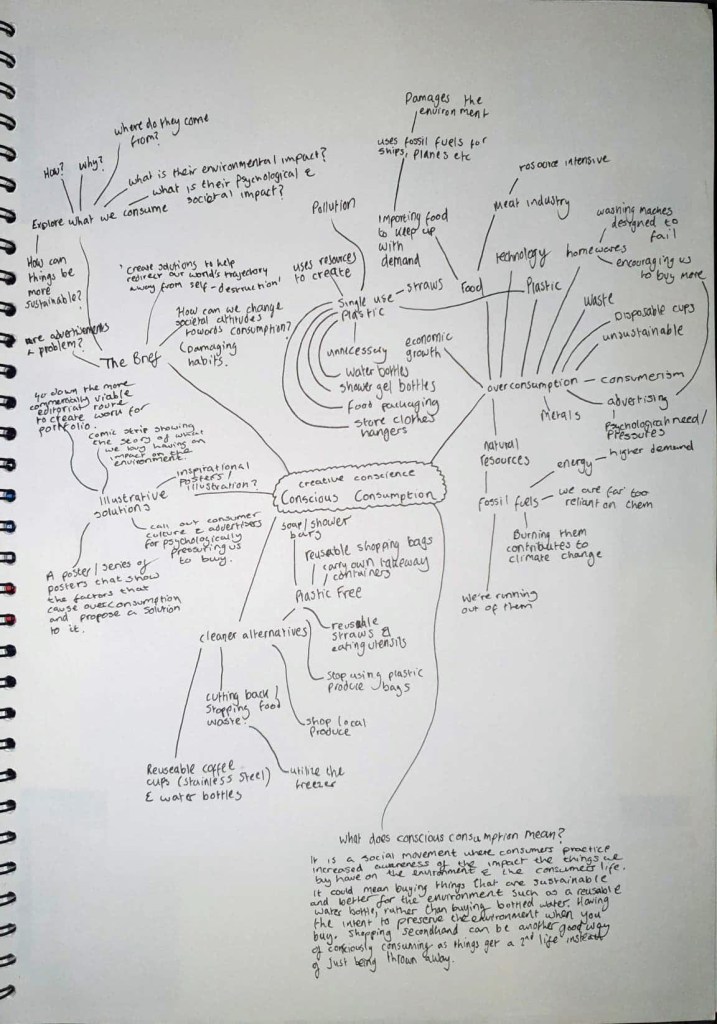 where do they come
from?
How?
why?
what is their environmental impact?
what is their psychological &
societal impact?
Explore what we consume
How can
things be
more
sustainable?
are advertisements
a problem?
'create solutions to help
redirect our world's trajectory
away from self-destruction'
How can we change
societal attitudes
towards consumption?
(Damaging
habits.
The Brief
Go down the more
commercially viable
editorial route
to create work for
portfolio.
comic strip showing
the story of what
we buy having an
impact on the
environment.
inspirational
posters/
illustration?
Illustrative
solutions
call out consumer
culture & advertisers
for psychologically
pressuring us
to buy.
A poster/series of
posters that show
the factors that
cause overconsumption
and propose a solution
to it.
creative conscience
Conscious Consumption
Damages the
environment
uses fossil fuels for
ships, planes etc
importing food
to keep up
with
demand
resource intensive
meat industry
Food
Pollution
uses resources
to create
Single use
Plastic
straws
unnecessary
water bottles
shower gel bottles
food packaging
store clothes
hangers
economic
growth
technology
Plastic
homewares
washing maches
designed to
fail
encouraging us
to buy more
waste
Disposable cups
unsustainable
overconsumption
consumerism
advertising
Psychological need/
Pressures
Metals
natural
resources
fossil fuels
energy
higher demand
we are far too
reliant on them
Burning them
contributes to
climate change
We're running
out of them
soap/shower
bars
reusable shopping bags
carry own takeway
containers
Plastic Free
cleaner alternatives
reusable
straws &
eating utensils
stop using plastic
produce bags
shop local
Produce
cutting back/
stopping food
waste.
utilize the
freezer
Reuseable coffee
cups (stainless steel)
& water bottles
what does conscious consumption mean?
It is a social movement where consumers practice
increased awareness of the impact the things we
buy have on the environment & the consumers life.
It could mean buying things that are sustainable
and better for the environment such as a reusable
water bottle, rather than buying bottled water. Having
the intent to preserve the environment when you
buy. Shopping secondhand can be another good way
of consciously consuming as things get a 2nd life instead
of just being thrown away.